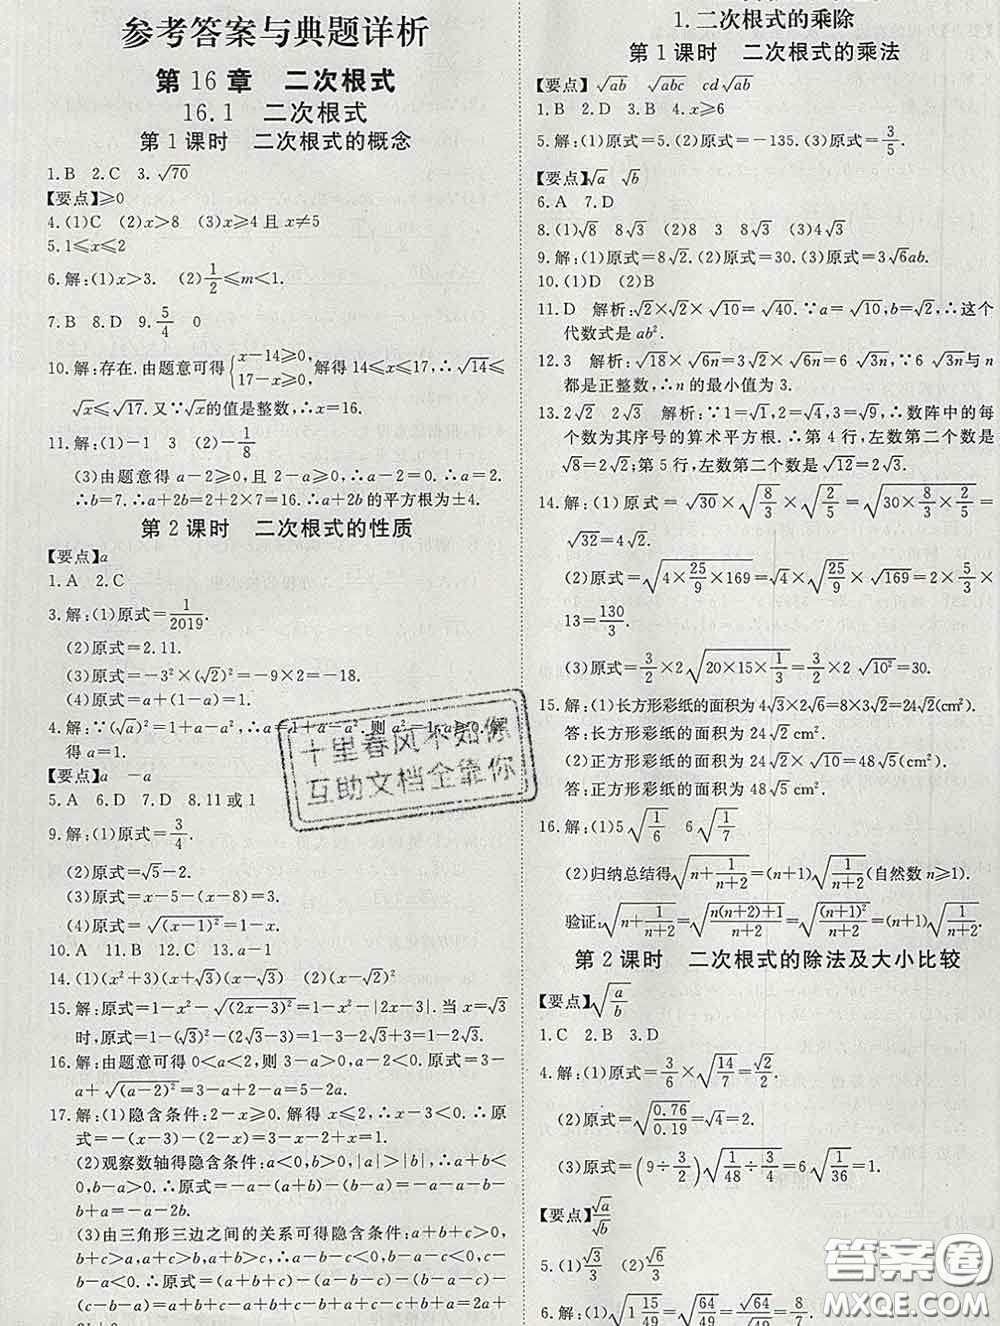 参考答案与典题详析
第16章　二次根式
16.1　二次根式
第1课时　二次根式的概念
1.B　2.C　3.√70
【要点】≥0
4.(1)C　(2)x>8　(3)x≥4且x≠5
5.1≤x≤2
6.解:(1)x>3.　(2)1/2≤m<1.
7.B　8.D　9.5/4　0
10.解:存在.由题意可得{x-14≥0, 17-x≥0,解得14≤x≤17.∴√14≤
√x≤√17.又∵√x的值是整数,∴x=16.
11.解:(1)-1　3　(2)-1/8
(3)由题意得a-2≥0,且2-a≥0,∴a-2=0.∴a=2.
∴b=7.∴a+2b=2+2×7=16.∴a+2b的平方根为±4.
第2课时　二次根式的性质
【要点】a
1.A　2.C
3.解:(1)原式=1/2019.
(2)原式=2.11.
(3)原式=-3²×(√2)²=-9×2=-18.
(4)原式=a+(1-a)=1.
4.解:∵(√a)²=1+a²,∴a=1+a-a².则a²=1,a≥0.解
得a=1.
【要点】a　-a
5.A　6.D　7.D　8.11或1
9.解:(1)原式=3/4.
(2)原式=√5-2.
(3)原式=x-5-(x-8)=3.
(4)原式=√(x-1)²=1-x.
10.A　11.B　12.C　13.a-1
14.(1)(x²+3)(x+√3)(x-√3)　(2)(x-√3)²
15.解:原式=1-x-√(2x-3)²=1-x-|2x-3|.当x=√3
时,原式=1-(√3)-(2√3-3)=1-2√3-√3+3=1-2√3.
16.解:由题意可得0<a<2,则3-a>0,a-2<0.原式=3-
a+√(a-2)²=3-a+2-a=5-2a.
17.解:(1)隐含条件:2-x≥0.解得x≤2,∴x-3<0.∴原
式=-(x-3)-(2-x)=3-x-2+x=1.
(2)观察数轴得隐含条件:a<0,b>0,|a|>|b|,∴a+b<
0,b-a>0.∴原式=-a-(a+b)-(b-a)=-a-a-b-b+
a=-a-2b.
(3)由三角形三边之间的关系可得隐含条件:a+b+c>0,
b+c>a,a+c>b,a+b>c,∴a-b-c<0,b-a-c<0,c-
b-a<0.∴原式=(a+b+c)-(a-b-c)-(b-a-c)-
(c-b-a)=a+b+c-a+b+c-b+a+c-c+b+a=2a+
1.二次根式的乘除
第1课时　二次根式的乘法
【要点】√ab　√abc　cd√ab
1.B　2.D　3.B　4.x≥6
5.解:(1)原式=5.(2)原式=-135.(3)原式=3/5.
【要点】√a　√b
6.A　7.D
8.(1)√8　8√3　(2)8　3　8√3　(3)4√3
9.解:(1)原式=8√2.(2)原式=30.(3)原式=3√6ab.
10.(1)D　(2)B
11.D　解析:√2×√2×√10=√40.∵a=√10,b=√2,∴这个
代数式是ab².
12.3　解析:√18×√6n=3√2×√6n=6√3n,∵6√3n与n
都是正整数,∴n的最小值为3.
13.2√2　2√3　解析:∵1=√1,2=√4,3=√9,∴数阵中的每
个数为其序号的算术平方根.∴第4行,左数第二个数是
√8=2√2;第5行,左数第二个数是√12=2√3.
14.解:(1)原式=√30×√(8/3)×√(2/5)=√(30×8/3×2/5)=
√32=4√2.
(2)原式=√(4×25/9×169)=√4×√(25/9)×√169=2×5/3×
13=130/3.
(3)原式=3/2×2√(20×15×1/3)=3/2×2√10²=30.
15.解:(1)长方形彩纸的面积为4√3×2√6=8×3√2=24√2(cm²).
答:长方形彩纸的面积为24√2 cm².
(2)正方形彩纸的面积为24√2×√10=48√5(cm²).
答:正方形彩纸的面积为48√5 cm².
16.解:(1)5√(1/6)　6√(1/7)
(2)归纳总结得√(n+1/(n+2))=(n+1)√(1/(n+2))(自然数n≥1).
验证:√(n+1/(n+2))=√((n(n+2)+1)/(n+2))=√((n+1)²/(n+2))=(n+1)√(1/(n+2)).
第2课时　二次根式的除法及大小比较
【要点】√(a/b)
1.C　2.B　3.D
4.解:(1)原式=3/6×√(14/7)=√2/2.
(2)原式=√(0.76/0.19)=√4=2.
(3)原式=(9÷3/2)√(1/48÷3/4)=6√(1/36)=1.
【要点】√a/√b
5.(1)√3/3　(2)√6/3
6.解:(1)原式=√(1 15/49)=√(64/49)=√64/√49=8/7.
十里春风不如你
互助文档全靠你
答案圈
MXQE.COM